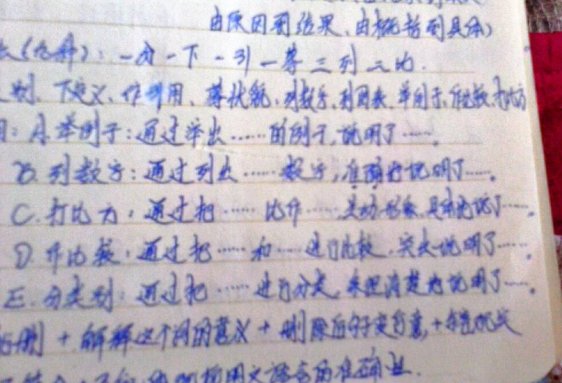 由原因到结果、由概括到具体)
(九种):一分一下一引一摹三列二比.
别、下定义、作引用、摹状貌、列数字、列图表、举例子、作比较、打比方
A.举例子:通过举出……的例子,说明了……。
B.列数字:通过列出……数字,准确地说明了……。
C.打比方:通过把……比作……生动形象、具体地说明了……。
D.作比较:通过把……和……进行比较,突出说明了……。
E.分类别:通过把……进行分类,条理清楚地说明了……。
删 + 解释这个词的意义 + 删除后的句子变为意,+
语言的准确性.